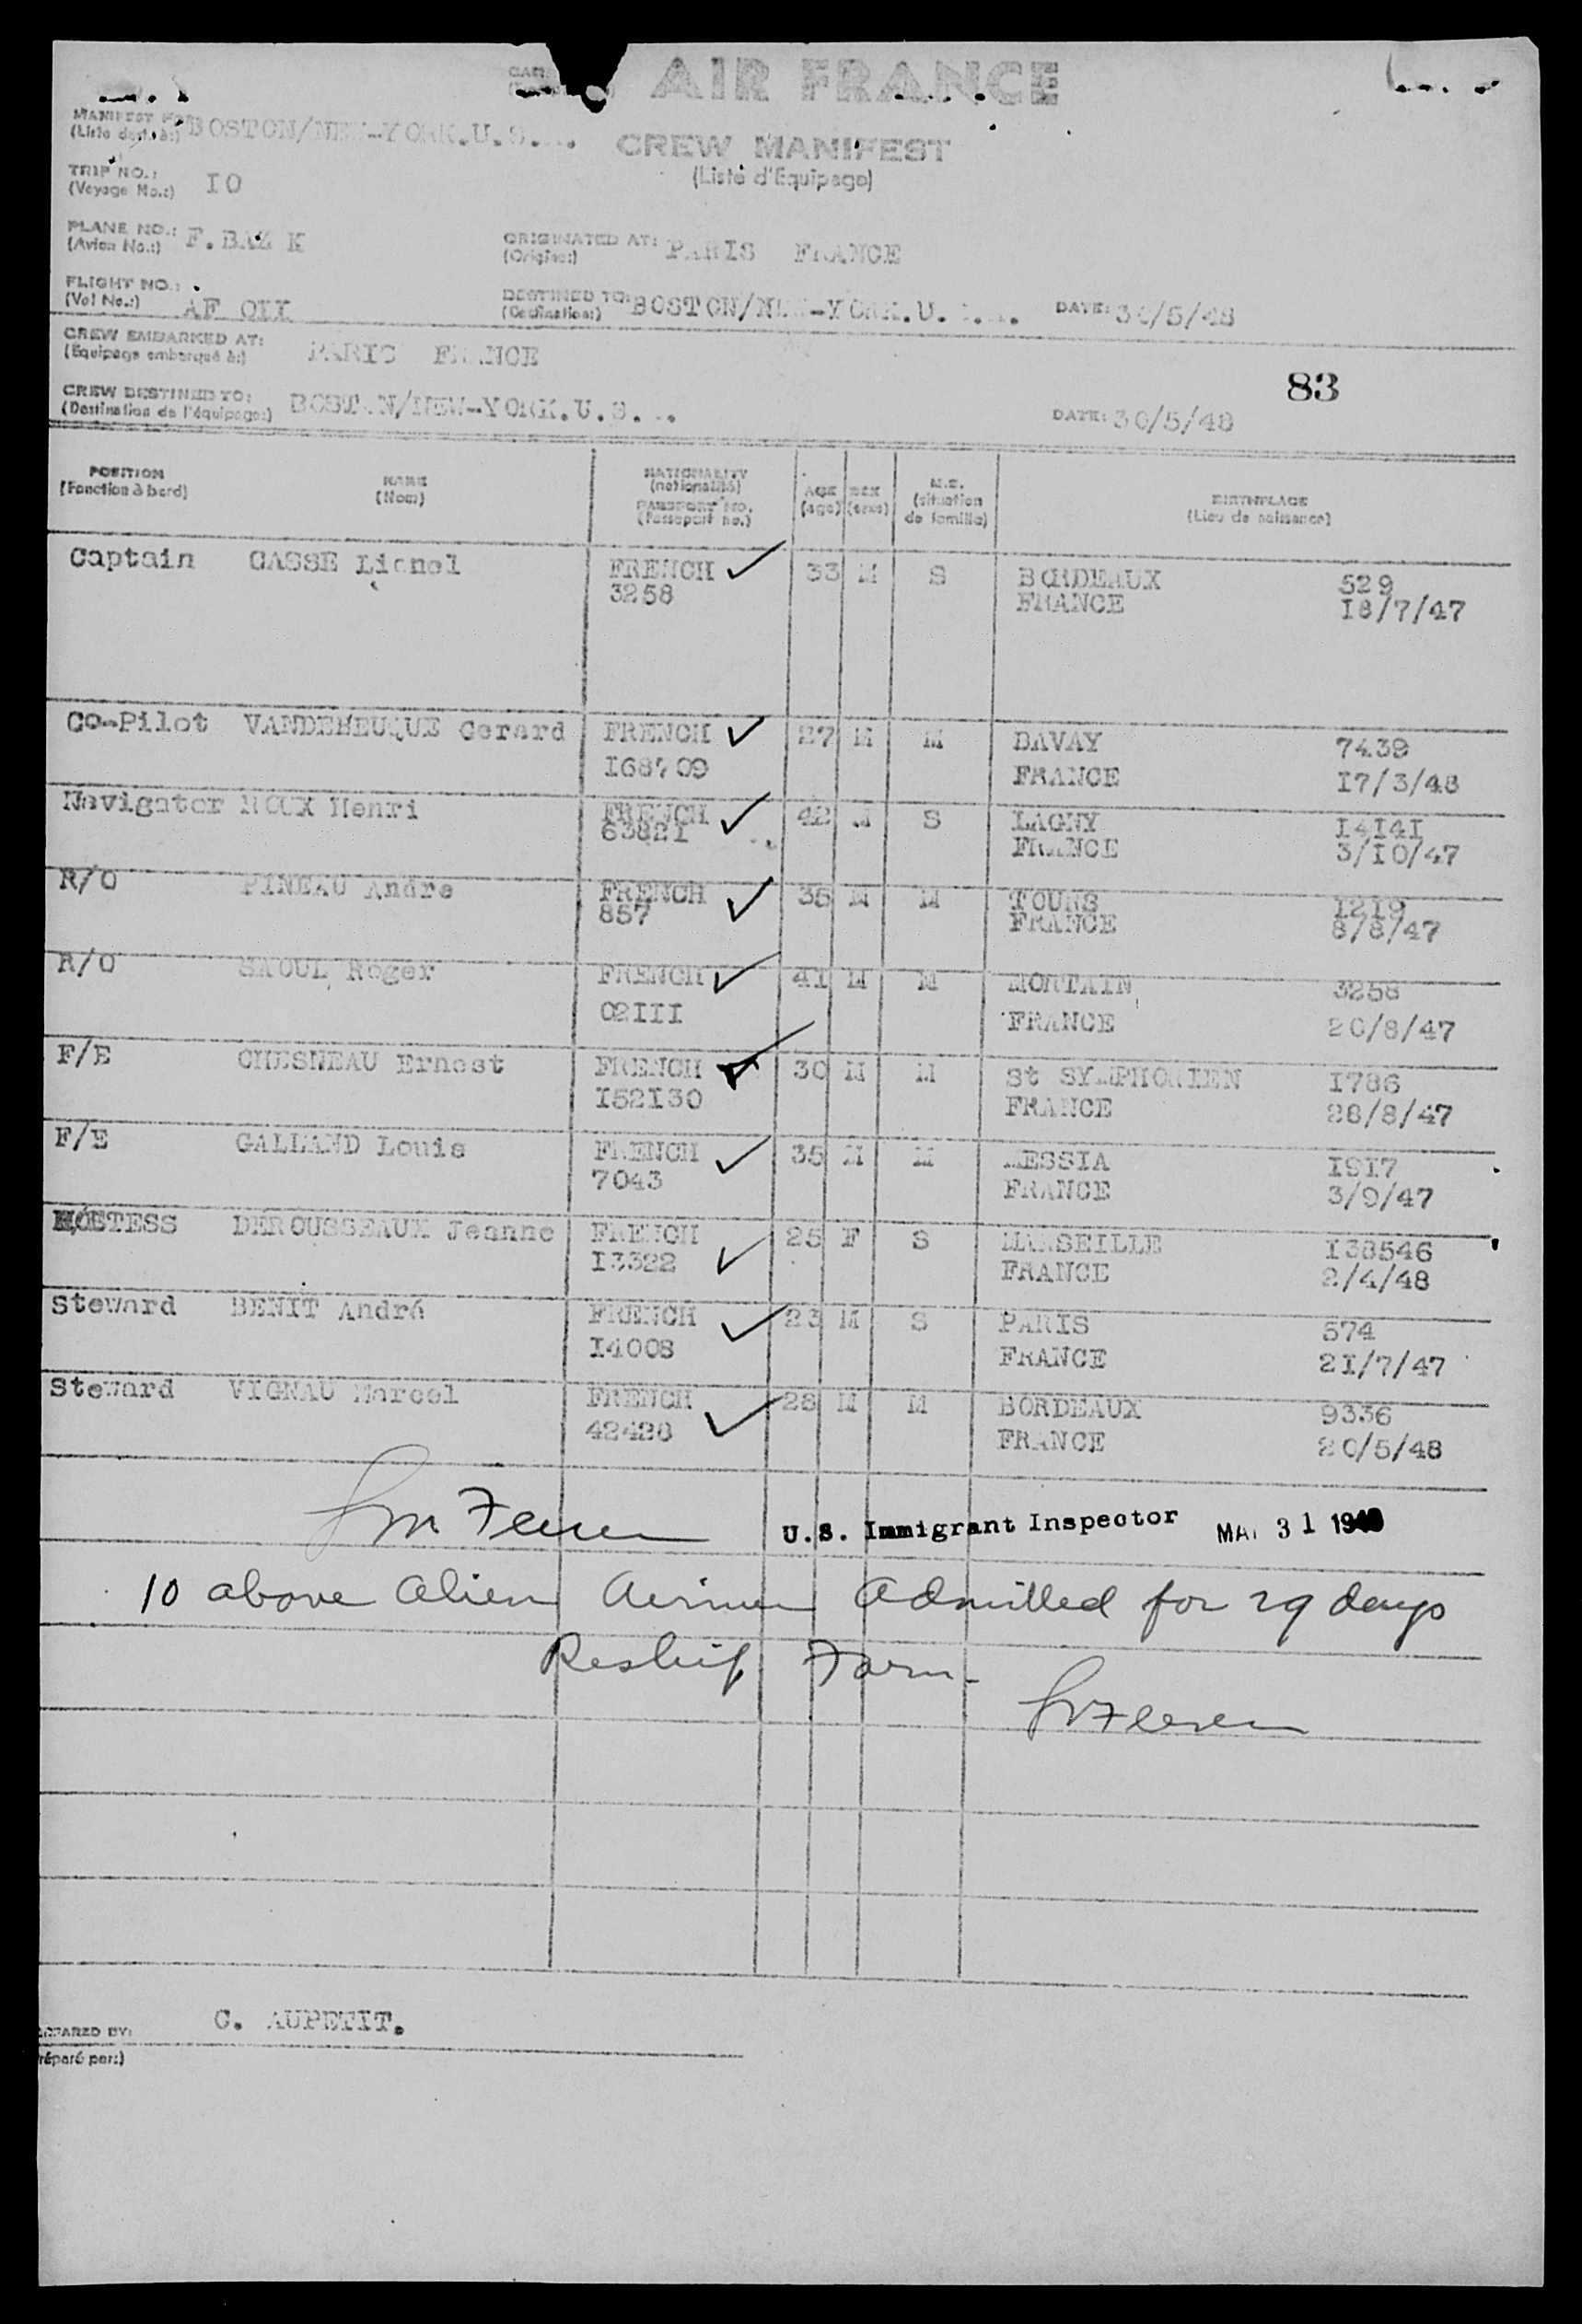 AIR FRANCE
CREW MANIFEST
(Liste d'Equipage)
MANIFEST BOSTON/NEW-YORK.U.S.
TRIP NO.: IO
(Voyage No.:)
PLANE NO.: F.BAZ K
(Avion No.:)
ORIGINATED AT: PARIS FRANCE
(Origine:)
FLIGHT NO.: AF
(Vol No.:)
DESTINED TO: BOSTON/NEW-YORK.U. DATE: 30/5/48
(Destination:)
CREW EMBARKED AT: PARIS FRANCE
(Equipage embarqué à:)
83
CREW DESTINED TO: BOSTON/NEW-YORK.U.S. DATE: 30/5/48
(Destination de l'équipage:)
POSITION NAME NATIONALITY AGE SEX M.S. BIRTHPLACE
(Fonction à bord) (Nom) (nationalité) (age) (sexe) (situation de famille) (Lieu de naissance)
PASSPORT NO.
(Passeport no.)
Captain GASSE Lionel FRENCH 33 M S BORDEAUX 529
3258 FRANCE I8/7/47
Co-Pilot VANDEHEUQUE Gerard FRENCH 27 M M BAVAY 7439
I68709 FRANCE I7/3/48
Navigator ROUX Henri FRENCH 42 M S LAGNY I4I4I
6382I FRANCE 3/IO/47
R/O PINEAU Andre FRENCH 35 M M TOURS I2I9
857 FRANCE 8/8/47
R/O SAOUL Roger FRENCH 4I M M MORTAIN 3258
02III FRANCE 20/8/47
F/E CHESNEAU Ernest FRENCH 30 M M St SYMPHORIEN I786
I52I30 FRANCE 28/8/47
F/E GALLAND Louis FRENCH 35 M M MESSIA I9I7
7043 FRANCE 3/9/47
HOSTESS DEROUSSEAUX Jeanne FRENCH 25 F S MARSEILLE I38546
I3322 FRANCE 2/4/48
Steward BENIT André FRENCH 23 M S PARIS 574
I4008 FRANCE 2I/7/47
Steward VIGNAU Marcel FRENCH 28 M M BORDEAUX 9336
42428 FRANCE 20/5/48
U.S. Immigrant Inspector MAY 31 1948
10 above alien airmen admitted for 29 days
Reship Form
PREPARED BY: G. AUPETIT.
(Préparé par:)